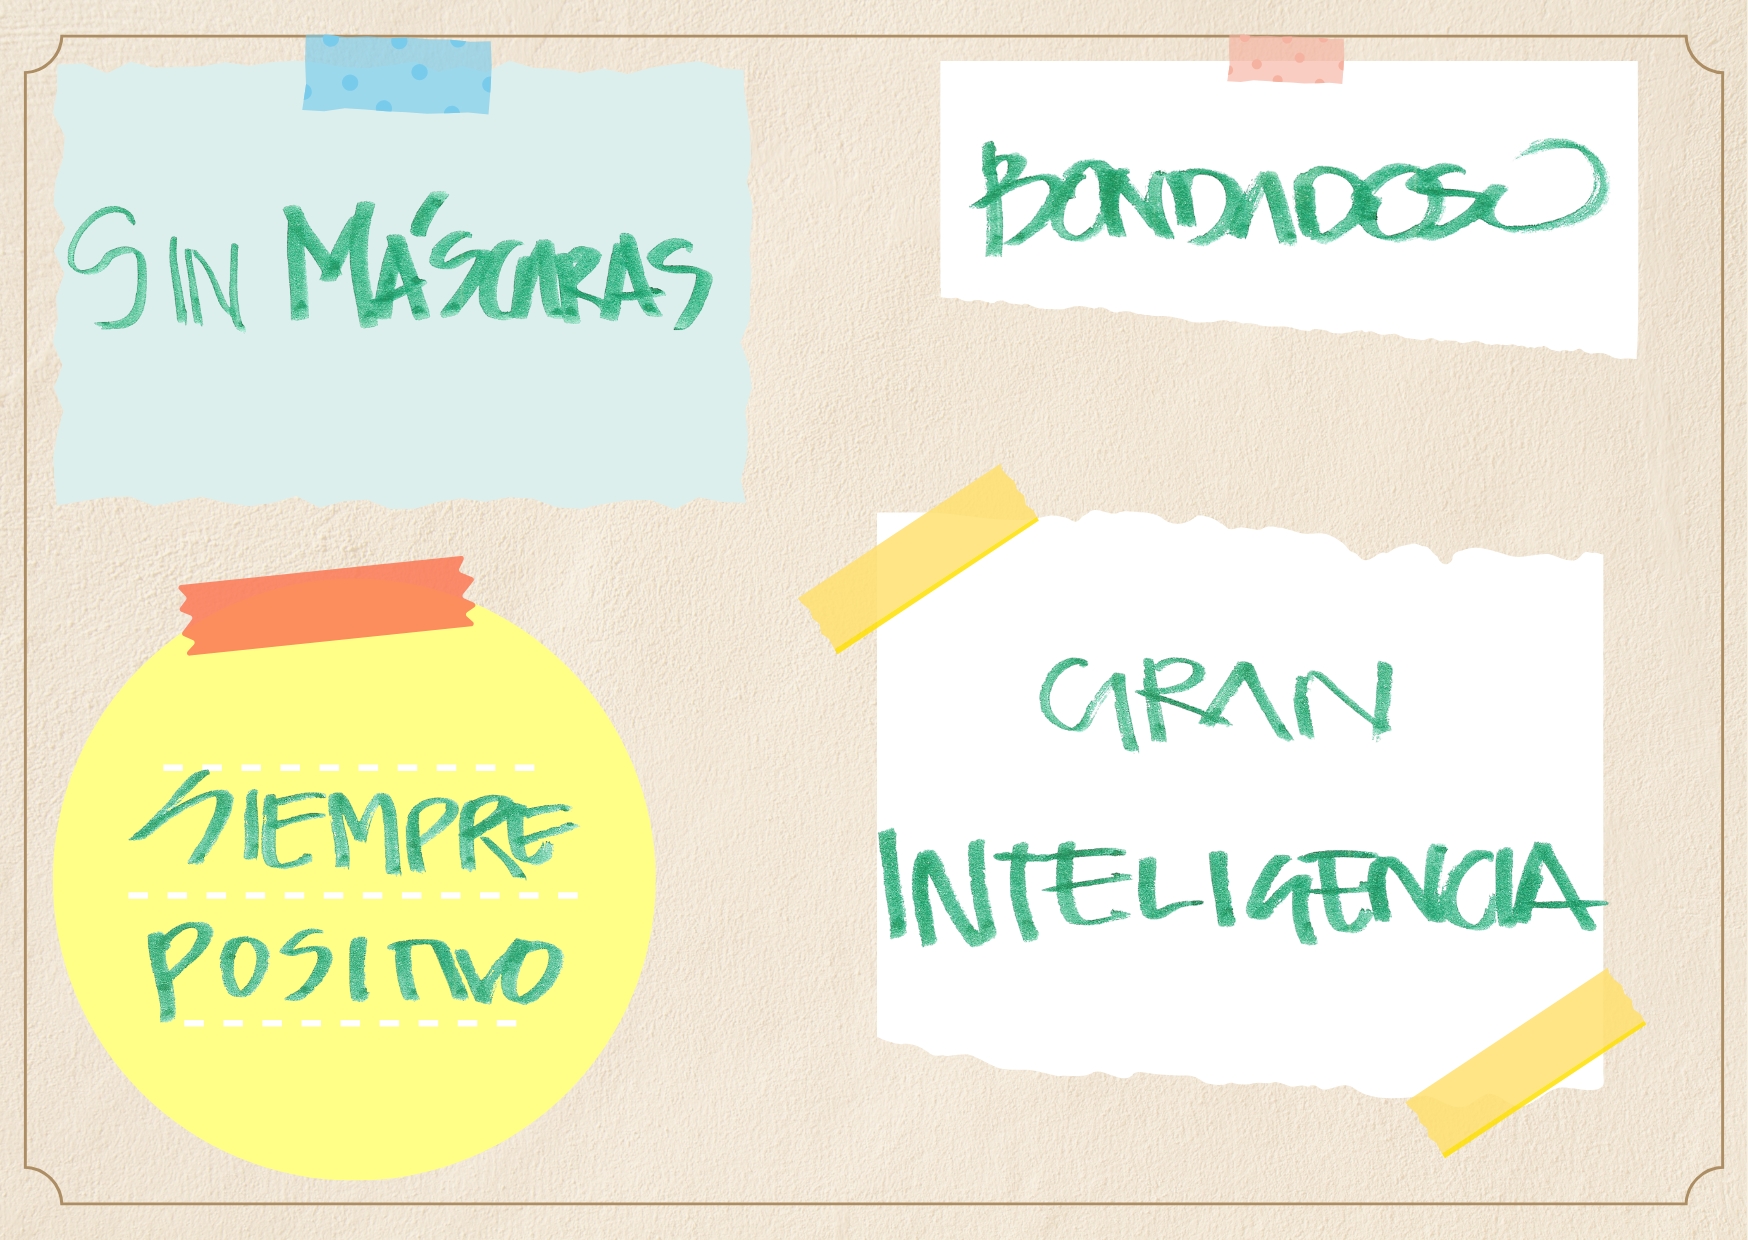 SIN MÁSCARAS
BONDADOSO
SIEMPRE
POSITIVO
GRAN
INTELIGENCIA